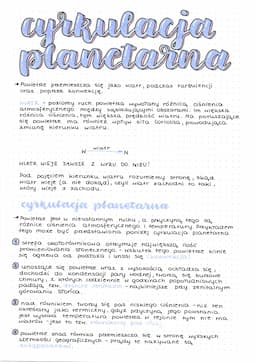 cyrkulacja
planetarna
→ Powietrze przemieszcza się jako wiatr, podczas turbulencji
oraz poprzez konwekcję.
WIATR - poziomy ruch powietrza wywołany różnicą ciśnienia
atmosferycznego między sąsiadującymi obszarami. Im większa
różnica ciśnienia, tym większa prędkość wiatru. Na poruszające
się powietrze ma również wpływ siła Coriolisa, powodująca
zmianę kierunku wiatru.
wiatr
W → N
WIATR WIEJE ZAWSZE Z WYŻU DO NIŻU!
Pod pojęciem kierunku wiatru rozumiemy stronę, skąd
wiatr wieje (a nie dokąd), czyli wiatr zachodni to taki,
który wieje z zachodu.
cyrkulacja planetarna
→ Powietrze jest w nieustannym ruchu, a przyczyną tego są
różnice ciśnienia atmosferycznego i temperatury. Skutkiem
tego może być przedstawiona poniżej cyrkulacja planetarna
1 Strefa okołorównikowa otrzymuje największą ilość
promieniowania słonecznego - wskutek tego powietrze silnie
się ogrzewa od podłoża i unosi się
2 Unoszące się powietrze wraz z wysokością ochładza się,
dochodzi do kondensacji pary wodnej, tworzą się kłębiaste
chmury, z których codziennie w godzinach popołudniowych
padają tzw. deszcze zenitalne - najsilniejsze przy zenitalnym
górowaniu Słońca.
3 Nad równikiem tworzy się pas niskiego ciśnienia - niż ten
określany jako termiczny, gdyż przyczyną jego powstania
jest wysoka temperatura powietrza. W rejonie tym nie ma
wiatru - jest to tzw.
4 Powietrze znad równika przemieszcza się w stronę wyższych
szerokości geograficznych - prądy te nazywane są
antypasatami.